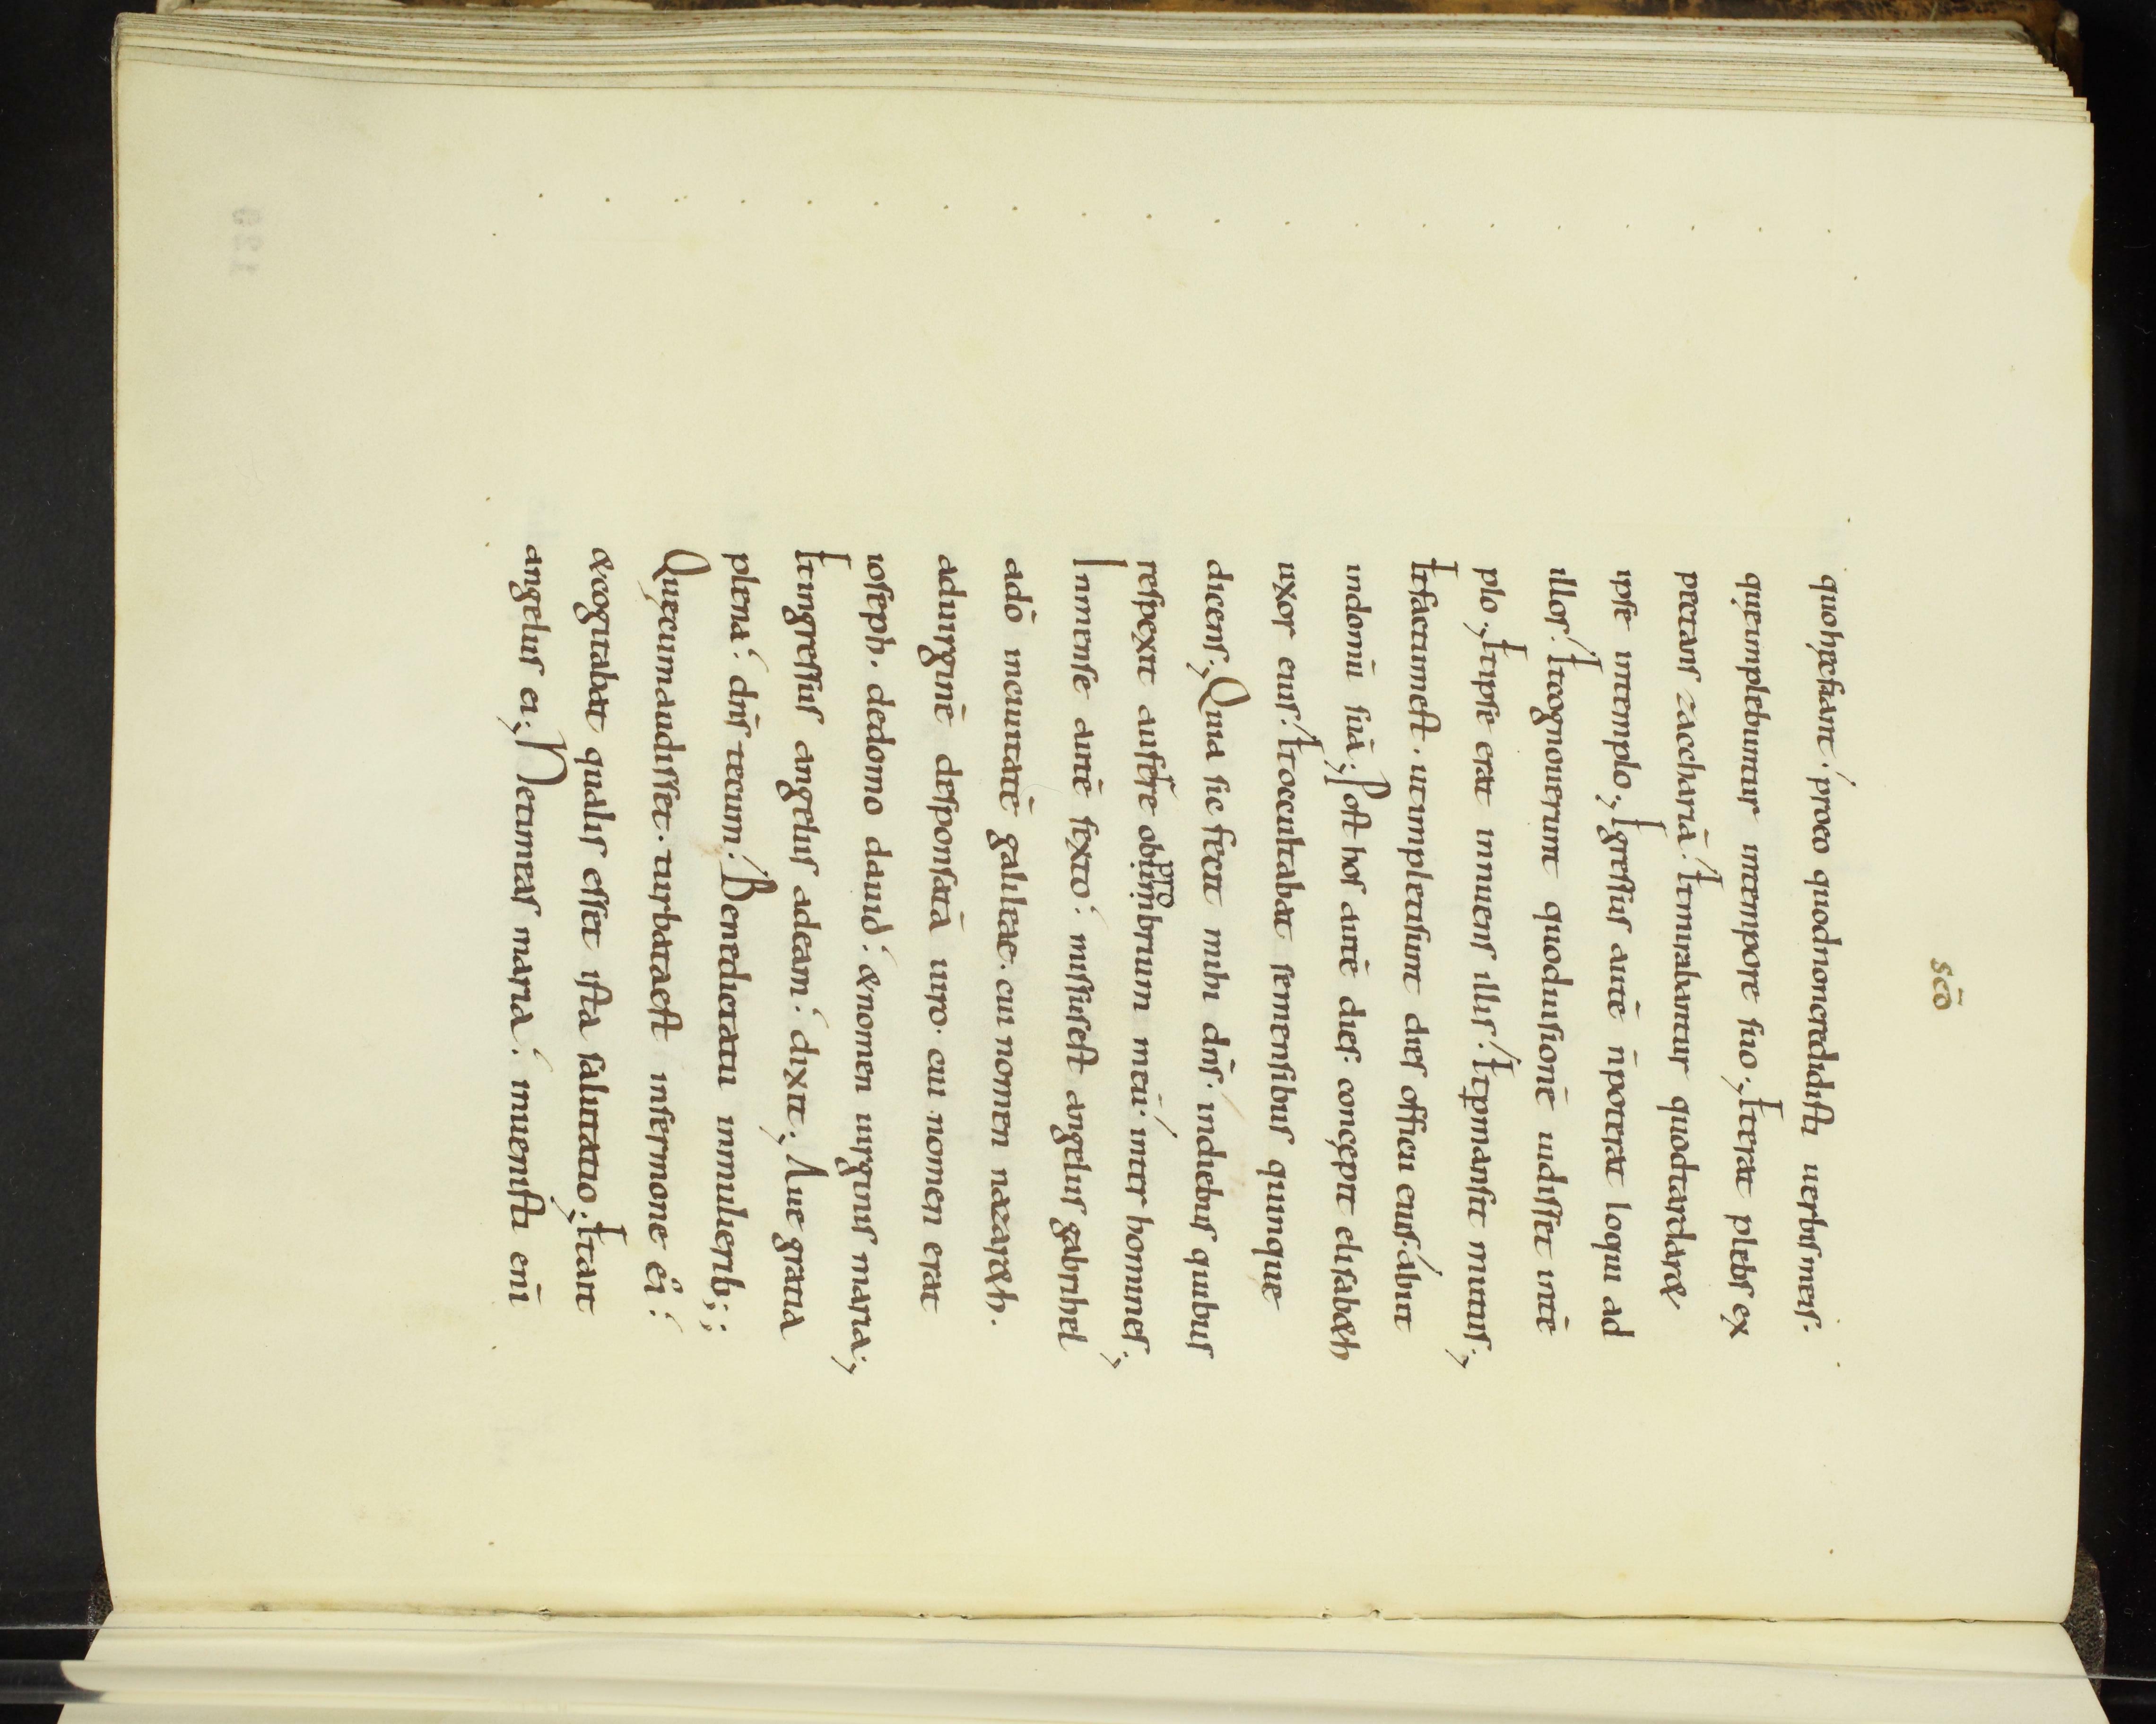 scđo
quohęcfiant. proeo quodnoncredidisti uerbis meis.
queimplebuntur intempore suo; Et erat plebs ex
pectans zacchariā. Et mirabantur quodtardar&
ipse intemplo; Egressus autē n̄ poterat loqui ad
illos. Et cognouerunt quoduisionē uidisset intē
plo; Et ipse erat innuens illis. Et p̱mansit mutus;
Et factumest. utimpletisunt dies officii eius. abiit
indomū suā; Post hos autē dies. concępit elisab&h
uxor eius. Et occultabat semensibus quinque
dicens; Quia sic fecit mihi dn̄s. indiebus quibus
respexit auferre obprobrium meū. inter homines;
Inmense autē sexto. missusest angelus gabrihel
adō inciuitatē galileae. cui nomen nazar&h.
aduirginē desponsatā uiro. cui nomen erat
ioseph. dedomo dauid. &nomen uirginis maria;
Et ingressus angelus adeam. dixit; Aue gratia
plena. dn̄s tecum. Benedictatu inmulierib;;
Quęcumaudisset. turbataest insermone ei.
&cogitabat qualis esset ista salutatio; Et ait
angelus ei; Netimeas maria. inuenisti enī